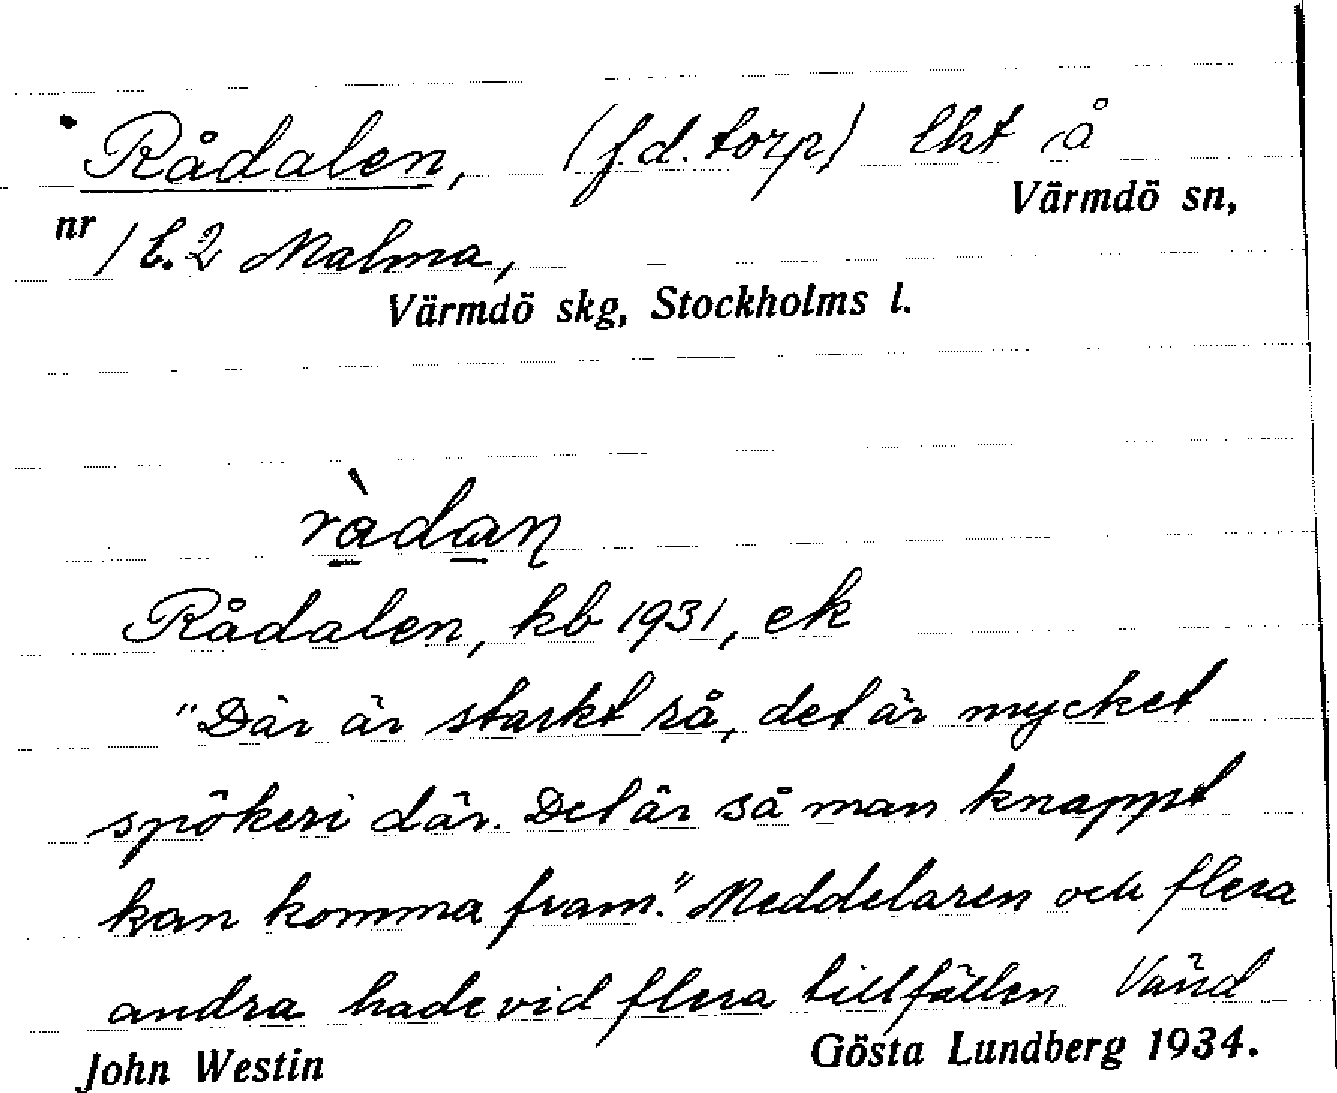 Rådalen, (f.d. torp) lht å
Värmdö sn,
nr / b. 2 Malma,
Värmdö skg, Stockholms l.
ràdaƞ
Rådalen, kb 1931, ek
"Där är starkt rå, det är mycket
spökeri där. Det är så man knappt
kan komma fram." Meddelaren och flera
andra hade vid flera tillfällen Vänd
John Westin Gösta Lundberg 1934.